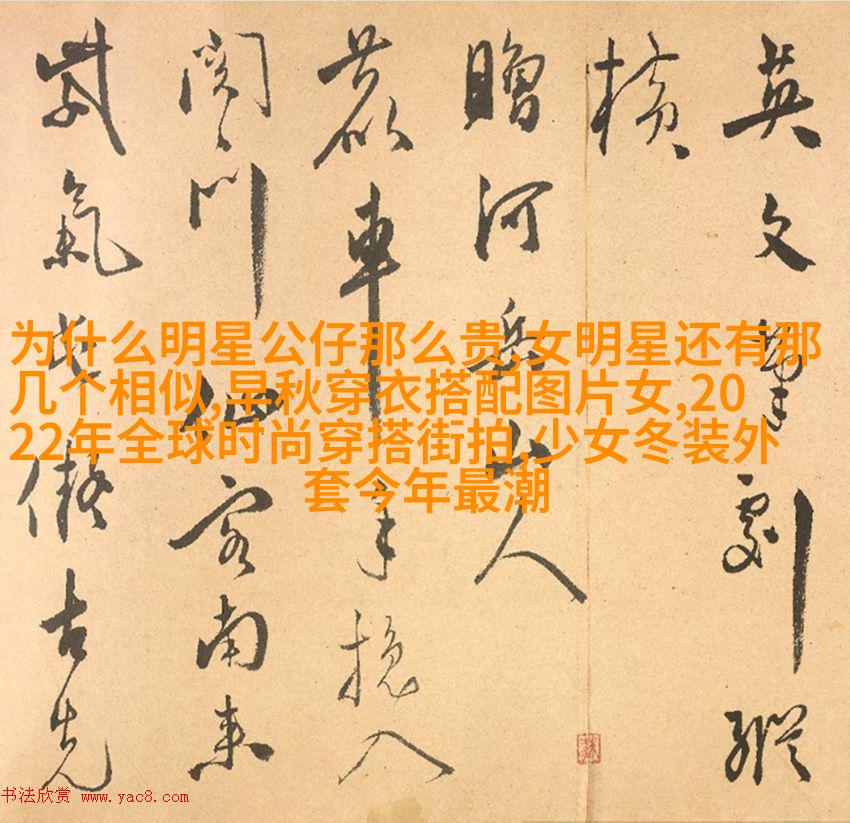 英文劇縱
橫
贈河岳山人
車手挽入
関门仙客南来
紫氣擬古先
为什么明星公仔那么贵,女明星还有那
几个相似,早秋穿衣搭配图片女,20
22年全球时尚穿搭街拍,少女冬装外
套今年最潮
书法欣赏 www.yac8.com